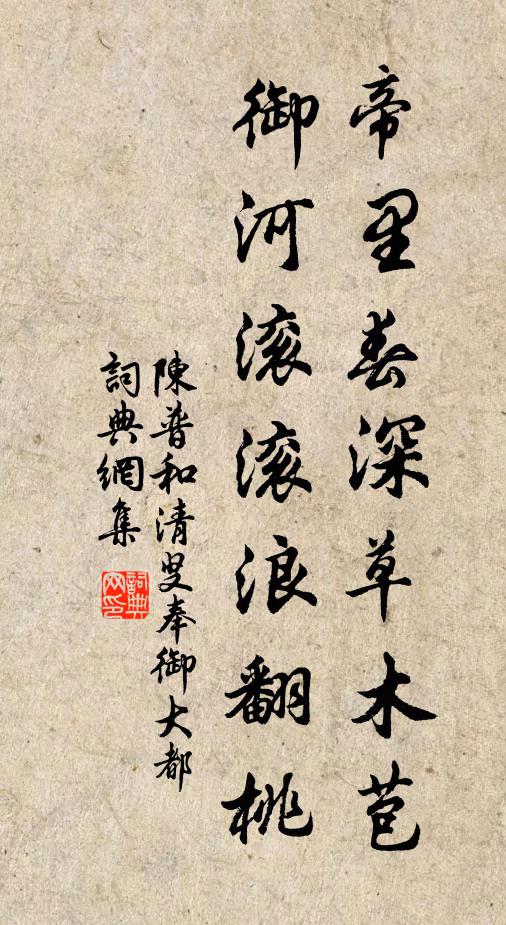 帝里春深草木苞
御河滚滚浪翻桃
陳普和清叟奉御大都
詞典網集
詞典网印